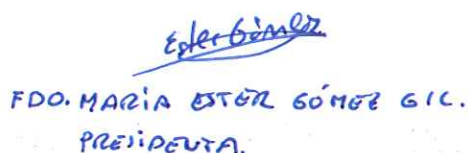 Ester Gómez
FDO. MARÍA ESTER GÓMEZ GIL.
PRESIDENTA.